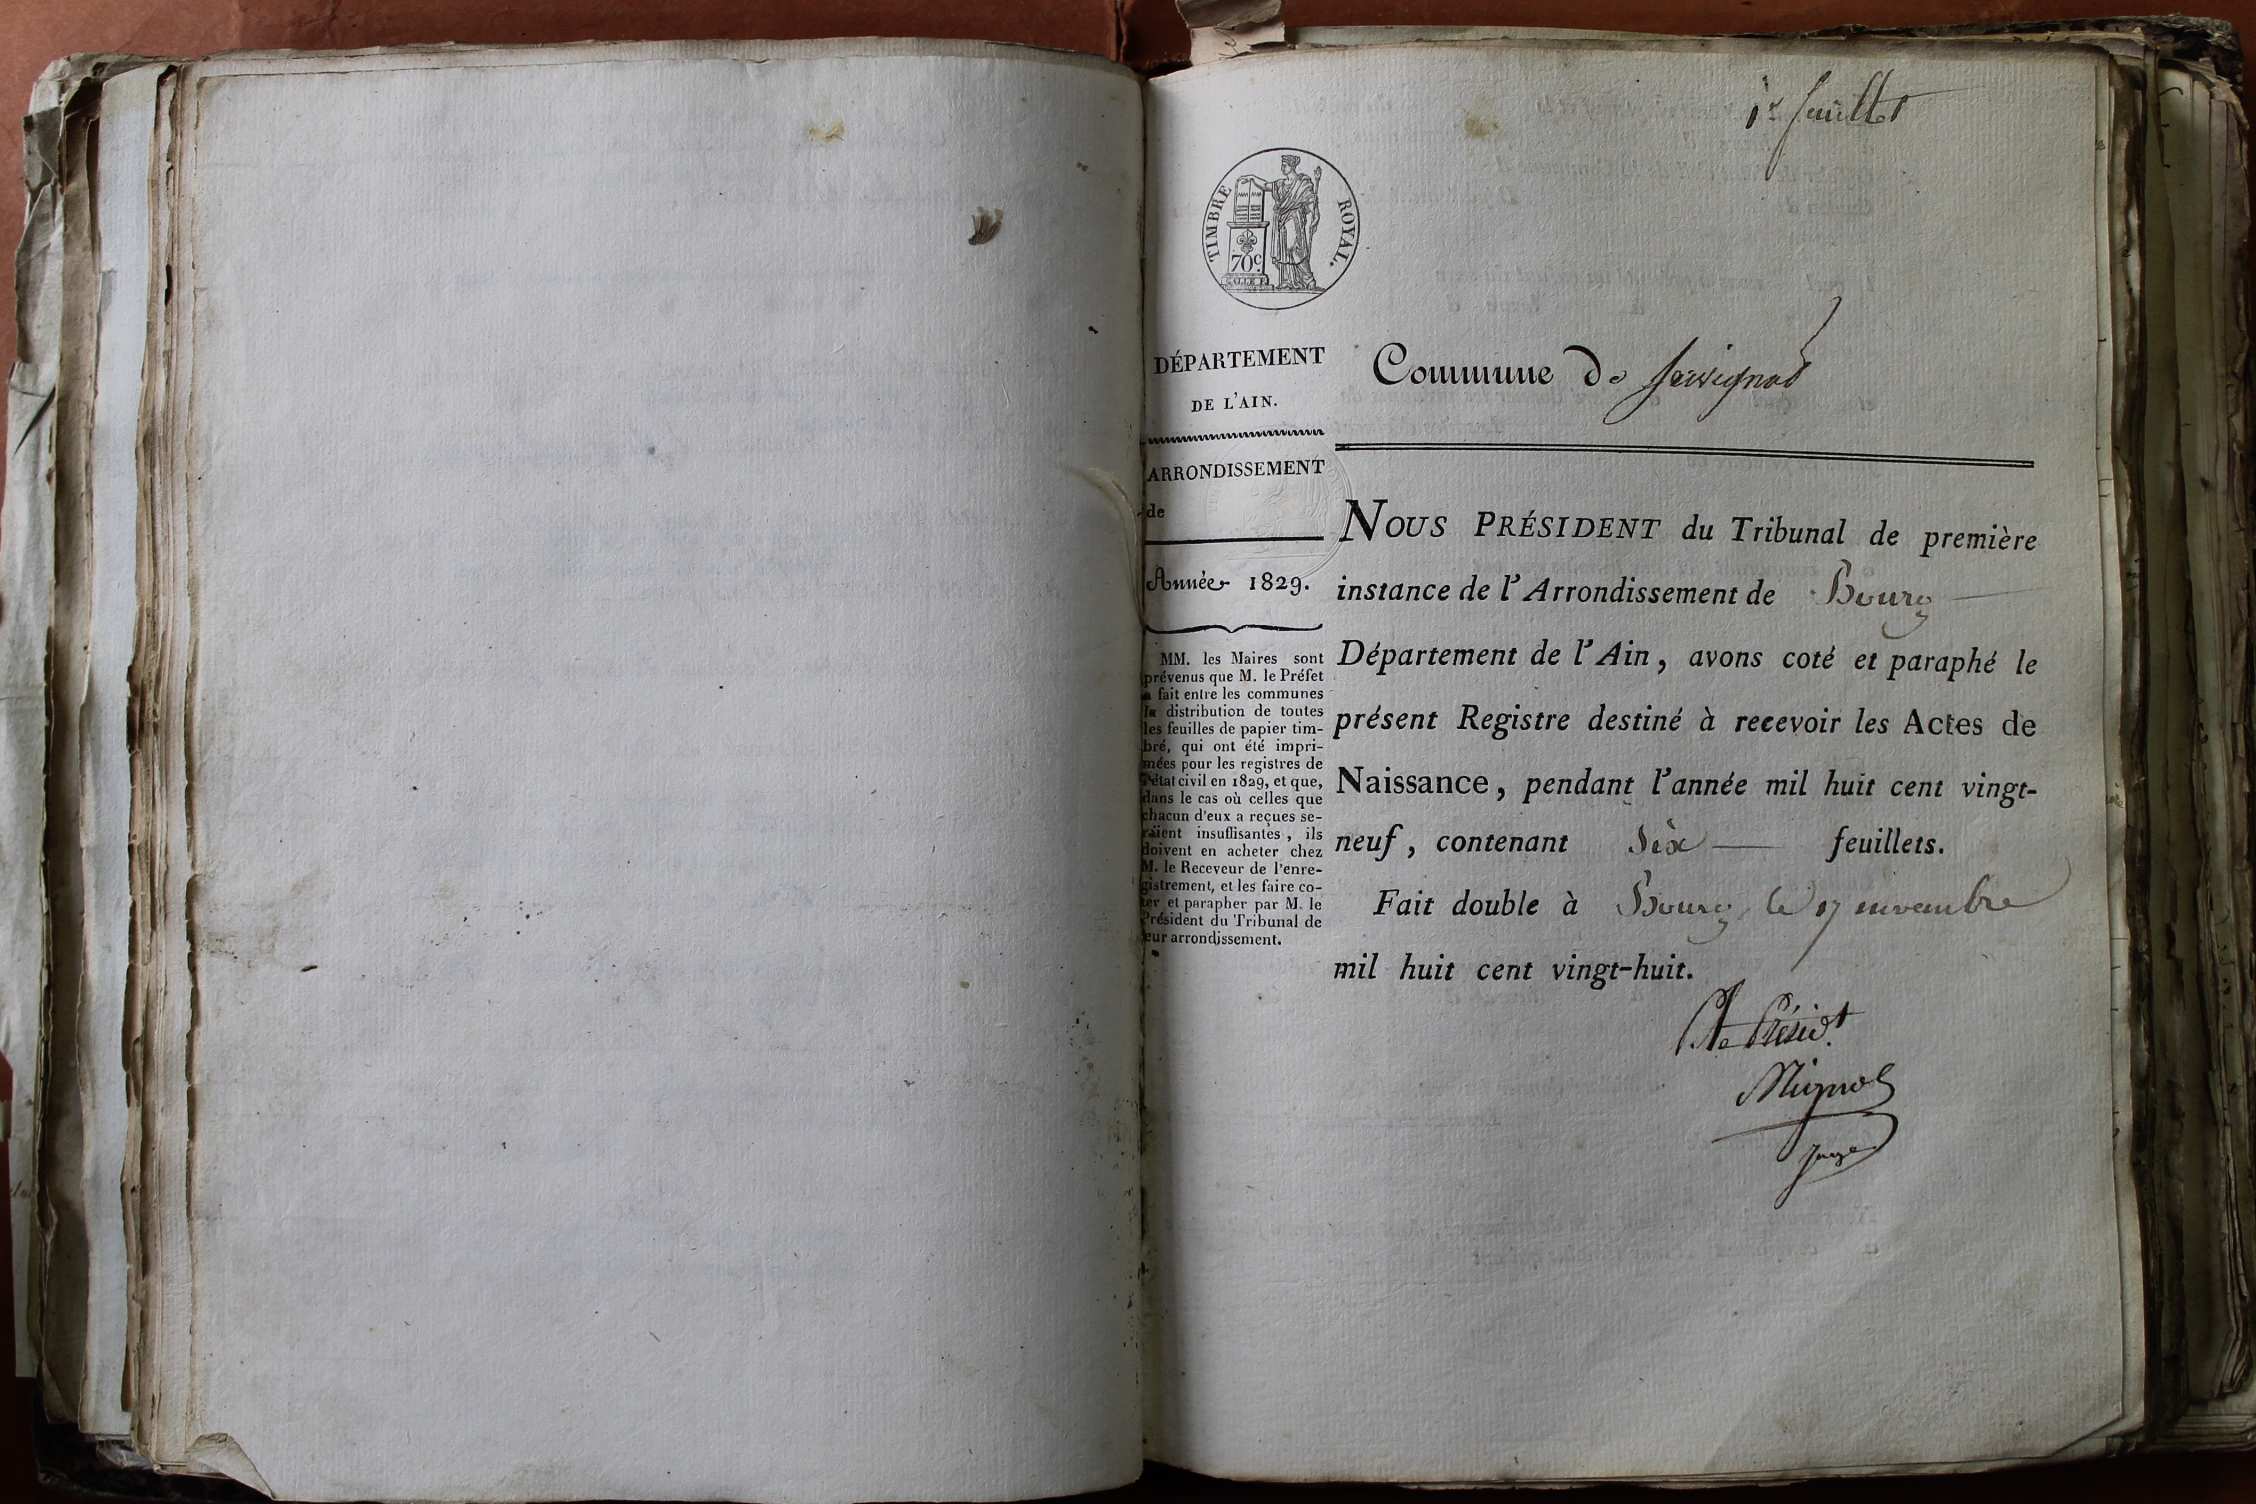 1er feuillet
TIMBRE ROYAL.
70c
DÉPARTEMENT
DE L'AIN.
ARRONDISSEMENT
de
Année 1829.
MM. les Maires sont
prévenus que M. le Préfet
a fait entre les communes
la distribution de toutes
les feuilles de papier tim-
bré, qui ont été impri-
mées pour les registres de
l'état civil en 1829, et que,
dans le cas où celles que
chacun d'eux a reçues se-
raient insuffisantes, ils
doivent en acheter chez
M. le Receveur de l'enre-
gistrement, et les faire co-
ter et parapher par M. le
Président du Tribunal de
leur arrondissement.
Commune de Servignat
NOUS PRÉSIDENT du Tribunal de première
instance de l'Arrondissement de Bourg
Département de l'Ain, avons coté et paraphé le
présent Registre destiné à recevoir les Actes de
Naissance, pendant l'année mil huit cent vingt-
neuf, contenant Six feuillets.
Fait double à Bourg, le 17 novembre
mil huit cent vingt-huit.
Le Présidt
juge